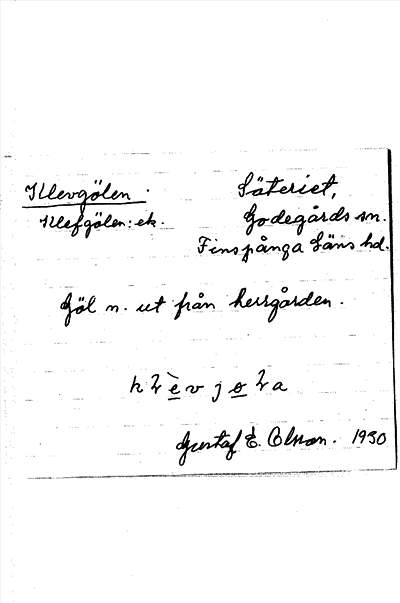 Klevgölen.
Säteriet,
Klefgölen: ek.
Godegårds sn.
Finspånga läns hd.
Göl n. ut från herrgården.
Gustaf E. Olsson. 1930